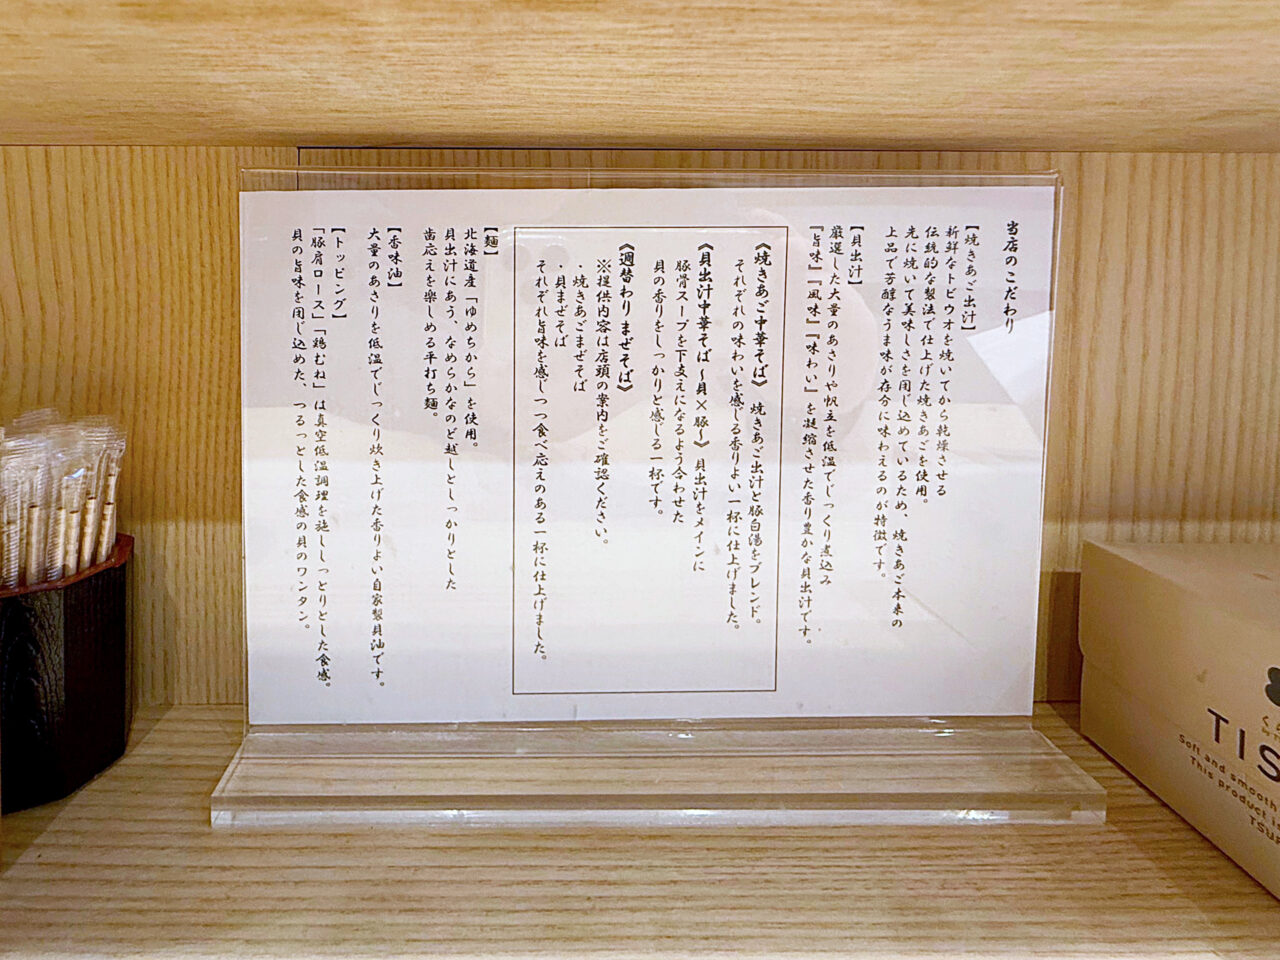 当店のこだわり
【焼きあご出汁】
新鮮なトビウオを焼いてから乾燥させる
伝統的な製法で仕上げた焼きあごを使用。
先に焼いて美味しさを閉じ込めているため、焼きあご本来の
上品で芳醇なうま味が存分に味わえるのが特徴です。
【貝出汁】
厳選した大量のあさりや帆立を低温でじっくり煮込み
『旨味』『風味』『味わい』を凝縮させた香り豊かな貝出汁です。
《焼きあご中華そば》 焼きあご出汁と豚白湯をブレンド。
それぞれの味わいを感じる香りよい一杯に仕上げました。
《貝出汁中華そば～貝×豚～》 貝出汁をメインに
豚骨スープを下支えになるよう合わせた
貝の香りをしっかりと感じる一杯です。
《週替わりまぜそば》
※提供内容は店頭の案内をご確認ください。
・焼きあごまぜそば
・貝まぜそば
それぞれ旨味を感じつつ食べ応えのある一杯に仕上げました。
【麺】
北海道産「ゆめちから」を使用。
貝出汁にあう、なめらかなのど越しとしっかりとした
歯応えを楽しめる平打ち麺。
【香味油】
大量のあさりを低温でじっくり炊き上げた香りよい自家製貝油です。
【トッピング】
「豚肩ロース」「鶏むね」は真空低温調理を施ししっとりとした食感。
貝の旨味を閉じ込めた、つるっとした食感の貝のワンタン。
TIS
Soft and smooth
This product is
TSU